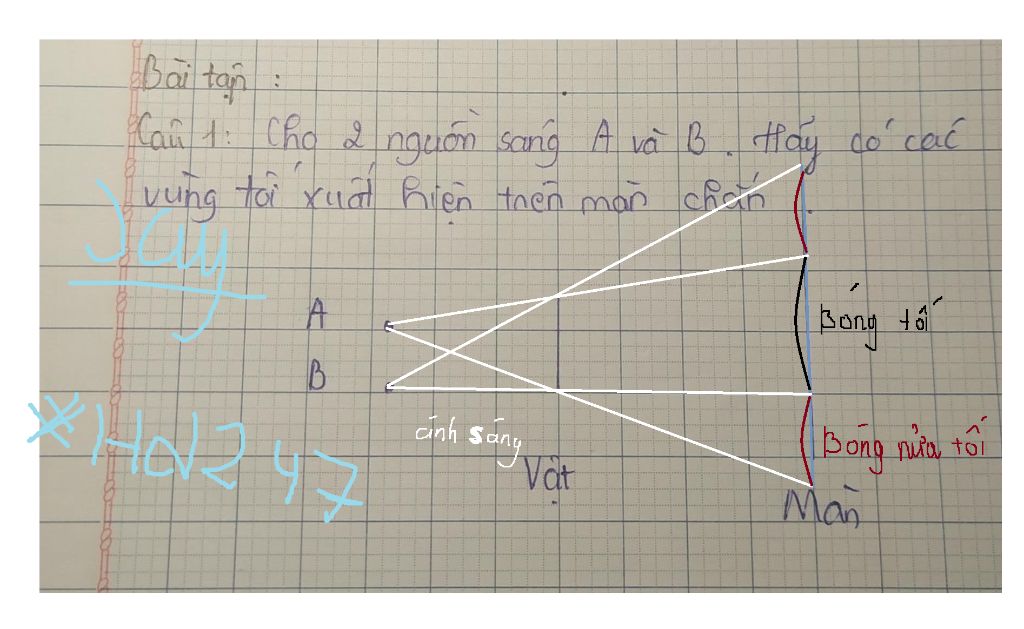 Bài tập :
Câu 1: Cho 2 nguồn sáng A và B. Hãy có các
vùng tối xuất hiện trên màn chắn.
Jay
A
B
Bóng tối
*HoN247
ánh sáng
Bóng nửa tối
Vật
Màn